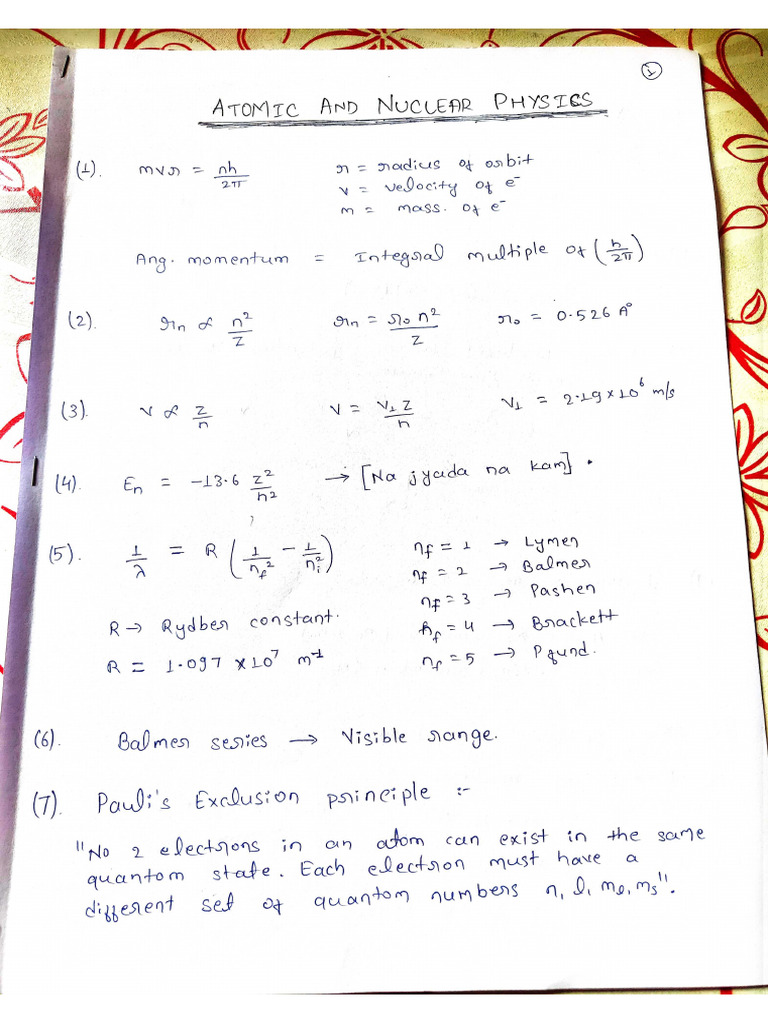 1
ATOMIC AND NUCLEAR PHYSICS
(1). mvr = nh/2π r = radius of orbit
v = velocity of e⁻
m = mass. of e⁻
Ang. momentum = Integral multiple of (h/2π)
(2). rn ∝ n²/Z rn = r₀ n²/Z r₀ = 0.526 A°
(3). v ∝ Z/n v = V₁ Z/n V₁ = 2.19 × 10⁶ m/s
(4). En = -13.6 Z²/n² → [Na jyada na kam] .
(5). 1/λ = R (1/nf² - 1/ni²) nf = 1 → Lymen
nf = 2 → Balmer
nf = 3 → Pashen
R → Rydber constant. nf = 4 → Brackett
R = 1.097 × 10⁷ m⁻¹ nf = 5 → Pfund.
(6). Balmer series → Visible range.
(7). Pauli's Exclusion principle :-
"No 2 electrons in an atom can exist in the same
quantom state. Each electron must have a
different set of quantom numbers n, l, ml, ms".